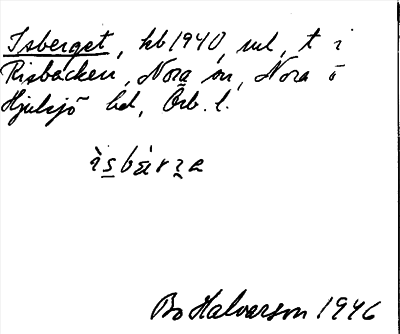 Isberget, kb 1940, nul, t i
Risbäcken, Nora sn, Nora o
Hjulsjö bd, Örb. l.
Bo Halvarson 1946